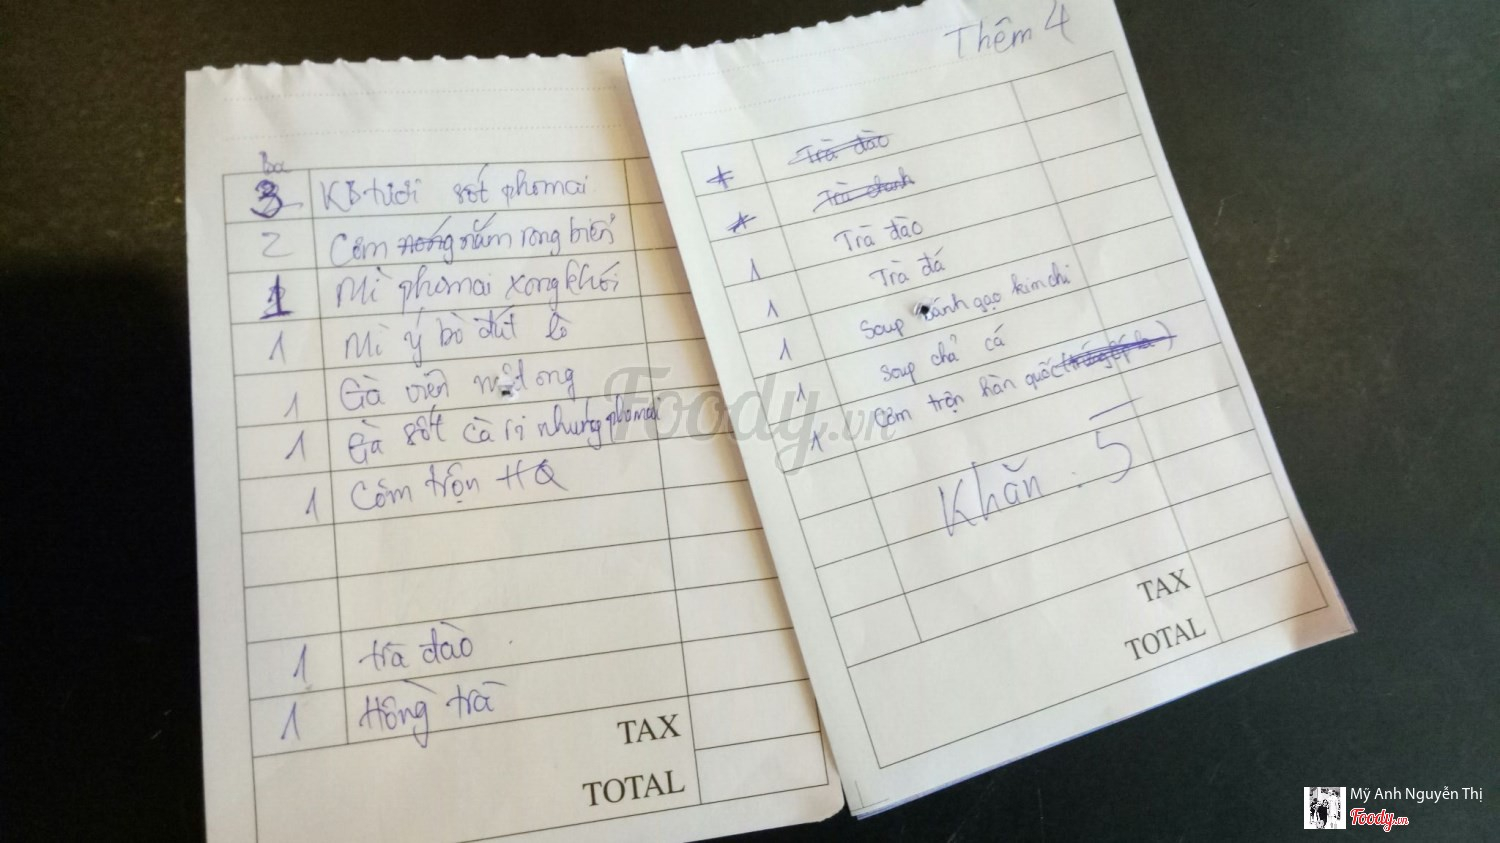 Ba
3 KB tươi sốt phomai
2 Cơm nóng nắm rong biển
1 Mì phomai xong khói
1 Mì ý bò đút lò
1 Gà viên mật ong
1 Gà sốt cà ri nhưng phomai
1 Cơm trộn HQ
1 trà đào
1 Hồng trà
TAX
TOTAL
Thêm 4
Trà đào
Trà chanh
1 Trà đào
1 Trà đá
1 Soup bánh gạo kim chi
1 Soup chả cá
1 Cơm trộn hàn quốc
Khăn: 5
TAX
TOTAL
Foody.vn
Mỹ Anh Nguyễn Thị
Foody.vn